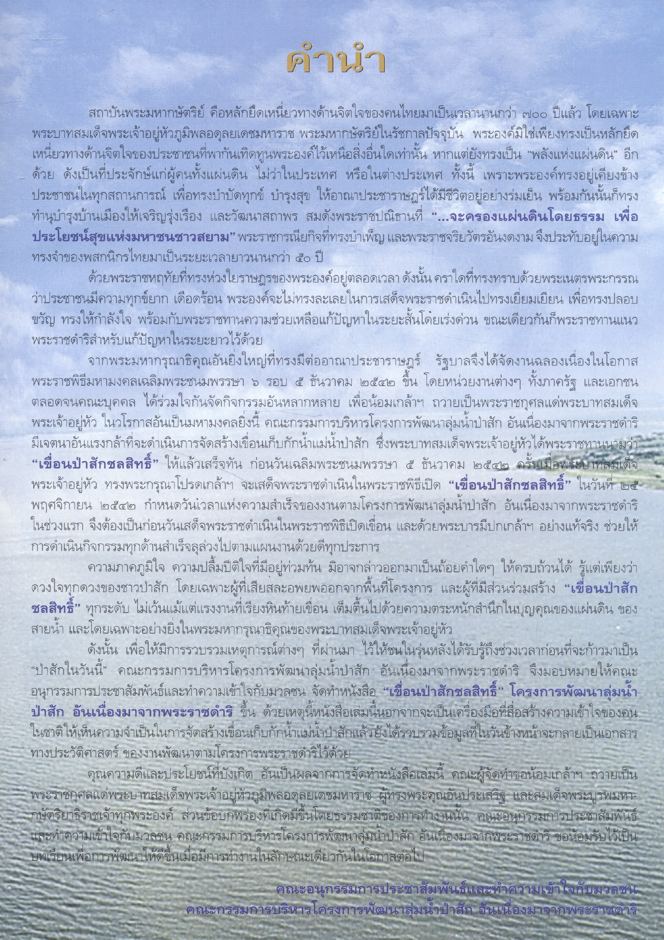 คำนำ
สถาบันพระมหากษัตริย์ คือหลักยึดเหนี่ยวทางด้านจิตใจของคนไทยมาเป็นเวลานานกว่า ๗๐๐ ปีแล้ว โดยเฉพาะ
พระบาทสมเด็จพระเจ้าอยู่หัวภูมิพลอดุลยเดชมหาราช พระมหากษัตริย์ในรัชกาลปัจจุบัน พระองค์มิใช่เพียงทรงเป็นหลักยึด
เหนี่ยวทางด้านจิตใจของประชาชนที่พากันเทิดทูนพระองค์ไว้เหนือสิ่งอื่นใดเท่านั้น หากแต่ยังทรงเป็น "พลังแห่งแผ่นดิน" อีก
ด้วย ดังเป็นที่ประจักษ์แก่ผู้คนทั้งแผ่นดิน ไม่ว่าในประเทศ หรือในต่างประเทศ ทั้งนี้ เพราะพระองค์ทรงอยู่เคียงข้าง
ประชาชนในทุกสถานการณ์ เพื่อทรงบำบัดทุกข์ บำรุงสุข ให้อาณาประชาราษฎร์ได้มีชีวิตอยู่อย่างร่มเย็น พร้อมกันนั้นก็ทรง
ทำนุบำรุงบ้านเมืองให้เจริญรุ่งเรือง และวัฒนาสถาพร สมดังพระราชปณิธานที่ "...จะครองแผ่นดินโดยธรรม เพื่อ
ประโยชน์สุขแห่งมหาชนชาวสยาม" พระราชกรณียกิจที่ทรงบำเพ็ญ และพระราชจริยวัตรอันงดงาม จึงประทับอยู่ในความ
ทรงจำของพสกนิกรไทยมาเป็นระยะเวลายาวนานกว่า ๕๐ ปี
ด้วยพระราชหฤทัยที่ทรงห่วงใยราษฎรของพระองค์อยู่ตลอดเวลา ดังนั้น คราใดที่ทรงทราบด้วยพระเนตรพระกรรณ
ว่าประชาชนมีความทุกข์ยาก เดือดร้อน พระองค์จะไม่ทรงละเลยในการเสด็จพระราชดำเนินไปทรงเยี่ยมเยียน เพื่อทรงปลอบ
ขวัญ ทรงให้กำลังใจ พร้อมกับพระราชทานความช่วยเหลือแก้ปัญหาในระยะสั้นโดยเร่งด่วน ขณะเดียวกันก็พระราชทานแนว
พระราชดำริสำหรับแก้ปัญหาในระยะยาวไว้ด้วย
จากพระมหากรุณาธิคุณอันยิ่งใหญ่ที่ทรงมีต่ออาณาประชาราษฎร์ รัฐบาลจึงได้จัดงานฉลองเนื่องในโอกาส
พระราชพิธีมหามงคลเฉลิมพระชนมพรรษา ๖ รอบ ๕ ธันวาคม ๒๕๔๒ ขึ้น โดยหน่วยงานต่างๆ ทั้งภาครัฐ และเอกชน
ตลอดจนคณะบุคคล ได้ร่วมใจกันจัดกิจกรรมอันหลากหลาย เพื่อน้อมเกล้าฯ ถวายเป็นพระราชกุศลแด่พระบาทสมเด็จ
พระเจ้าอยู่หัว ในวโรกาสอันเป็นมหามงคลยิ่งนี้ คณะกรรมการบริหารโครงการพัฒนาลุ่มน้ำป่าสัก อันเนื่องมาจากพระราชดำริ
มีเจตนาอันแรงกล้าที่จะดำเนินการจัดสร้างเขื่อนเก็บกักน้ำแม่น้ำป่าสัก ซึ่งพระบาทสมเด็จพระเจ้าอยู่หัวได้พระราชทานนามว่า
"เขื่อนป่าสักชลสิทธิ์" ให้แล้วเสร็จทัน ก่อนวันเฉลิมพระชนมพรรษา ๕ ธันวาคม ๒๕๔๒ ครั้นเมื่อพระบาทสมเด็จ
พระเจ้าอยู่หัว ทรงพระกรุณาโปรดเกล้าฯ จะเสด็จพระราชดำเนินในพระราชพิธีเปิด "เขื่อนป่าสักชลสิทธิ์" ในวันที่ ๒๕
พฤศจิกายน ๒๕๔๒ กำหนดวันเวลาแห่งความสำเร็จของงานตามโครงการพัฒนาลุ่มน้ำป่าสัก อันเนื่องมาจากพระราชดำริ
ในช่วงแรก จึงต้องเป็นก่อนวันเสด็จพระราชดำเนินในพระราชพิธีเปิดเขื่อน และด้วยพระบารมีปกเกล้าฯ อย่างแท้จริง ช่วยให้
การดำเนินกิจกรรมทุกด้านสำเร็จลุล่วงไปตามแผนงานด้วยดีทุกประการ
ความภาคภูมิใจ ความปลื้มปีติใจที่มีอยู่ท่วมท้น มิอาจกล่าวออกมาเป็นถ้อยคำใดๆ ให้ครบถ้วนได้ รู้แต่เพียงว่า
ดวงใจทุกดวงของชาวป่าสัก โดยเฉพาะผู้ที่เสียสละอพยพออกจากพื้นที่โครงการ และผู้ที่มีส่วนร่วมสร้าง "เขื่อนป่าสัก
ชลสิทธิ์" ทุกระดับ ไม่เว้นแม้แต่แรงงานที่เรียงหินท้ายเขื่อน เต็มตื้นไปด้วยความตระหนักสำนึกในบุญคุณของแผ่นดิน ของ
สายน้ำ และโดยเฉพาะอย่างยิ่งในพระมหากรุณาธิคุณของพระบาทสมเด็จพระเจ้าอยู่หัว
ดังนั้น เพื่อให้มีการรวบรวมเหตุการณ์ต่างๆ ที่ผ่านมา ไว้ให้ชนในรุ่นหลังได้รับรู้ถึงช่วงเวลาก่อนที่จะก้าวมาเป็น
"ป่าสักในวันนี้" คณะกรรมการบริหารโครงการพัฒนาลุ่มน้ำป่าสัก อันเนื่องมาจากพระราชดำริ จึงมอบหมายให้คณะ
อนุกรรมการประชาสัมพันธ์และทำความเข้าใจกับมวลชน จัดทำหนังสือ "เขื่อนป่าสักชลสิทธิ์" โครงการพัฒนาลุ่มน้ำ
ป่าสัก อันเนื่องมาจากพระราชดำริ ขึ้น ด้วยเหตุนี้หนังสือเล่มนี้นอกจากจะเป็นเครื่องมือที่สื่อสร้างความเข้าใจของคน
ในชาติให้เห็นความจำเป็นในการจัดสร้างเขื่อนเก็บกักน้ำแม่น้ำป่าสักแล้ว ยังได้รวบรวมข้อมูลที่ในวันข้างหน้าจะกลายเป็นเอกสาร
ทางประวัติศาสตร์ ของงานพัฒนาตามโครงการพระราชดำริไว้ด้วย
คุณความดีและประโยชน์ที่บังเกิด อันเป็นผลจากการจัดทำหนังสือเล่มนี้ คณะผู้จัดทำขอน้อมเกล้าฯ ถวายเป็น
พระราชกุศลแด่พระบาทสมเด็จพระเจ้าอยู่หัวภูมิพลอดุลยเดชมหาราช ผู้ทรงพระคุณอันประเสริฐ และสมเด็จพระบูรพมหา-
กษัตริยาธิราชเจ้าทุกพระองค์ ส่วนข้อบกพร่องที่เกิดมีขึ้นโดยธรรมชาติของการทำงานนั้น คณะอนุกรรมการประชาสัมพันธ์
และทำความเข้าใจกับมวลชน คณะกรรมการบริหารโครงการพัฒนาลุ่มน้ำป่าสัก อันเนื่องมาจากพระราชดำริ ขอน้อมรับไว้เป็น
บทเรียนเพื่อการพัฒนาให้ดีขึ้นเมื่อมีการทำงานในลักษณะเดียวกันในโอกาสต่อไป
คณะอนุกรรมการประชาสัมพันธ์และทำความเข้าใจกับมวลชน
คณะกรรมการบริหารโครงการพัฒนาลุ่มน้ำป่าสัก อันเนื่องมาจากพระราชดำริ